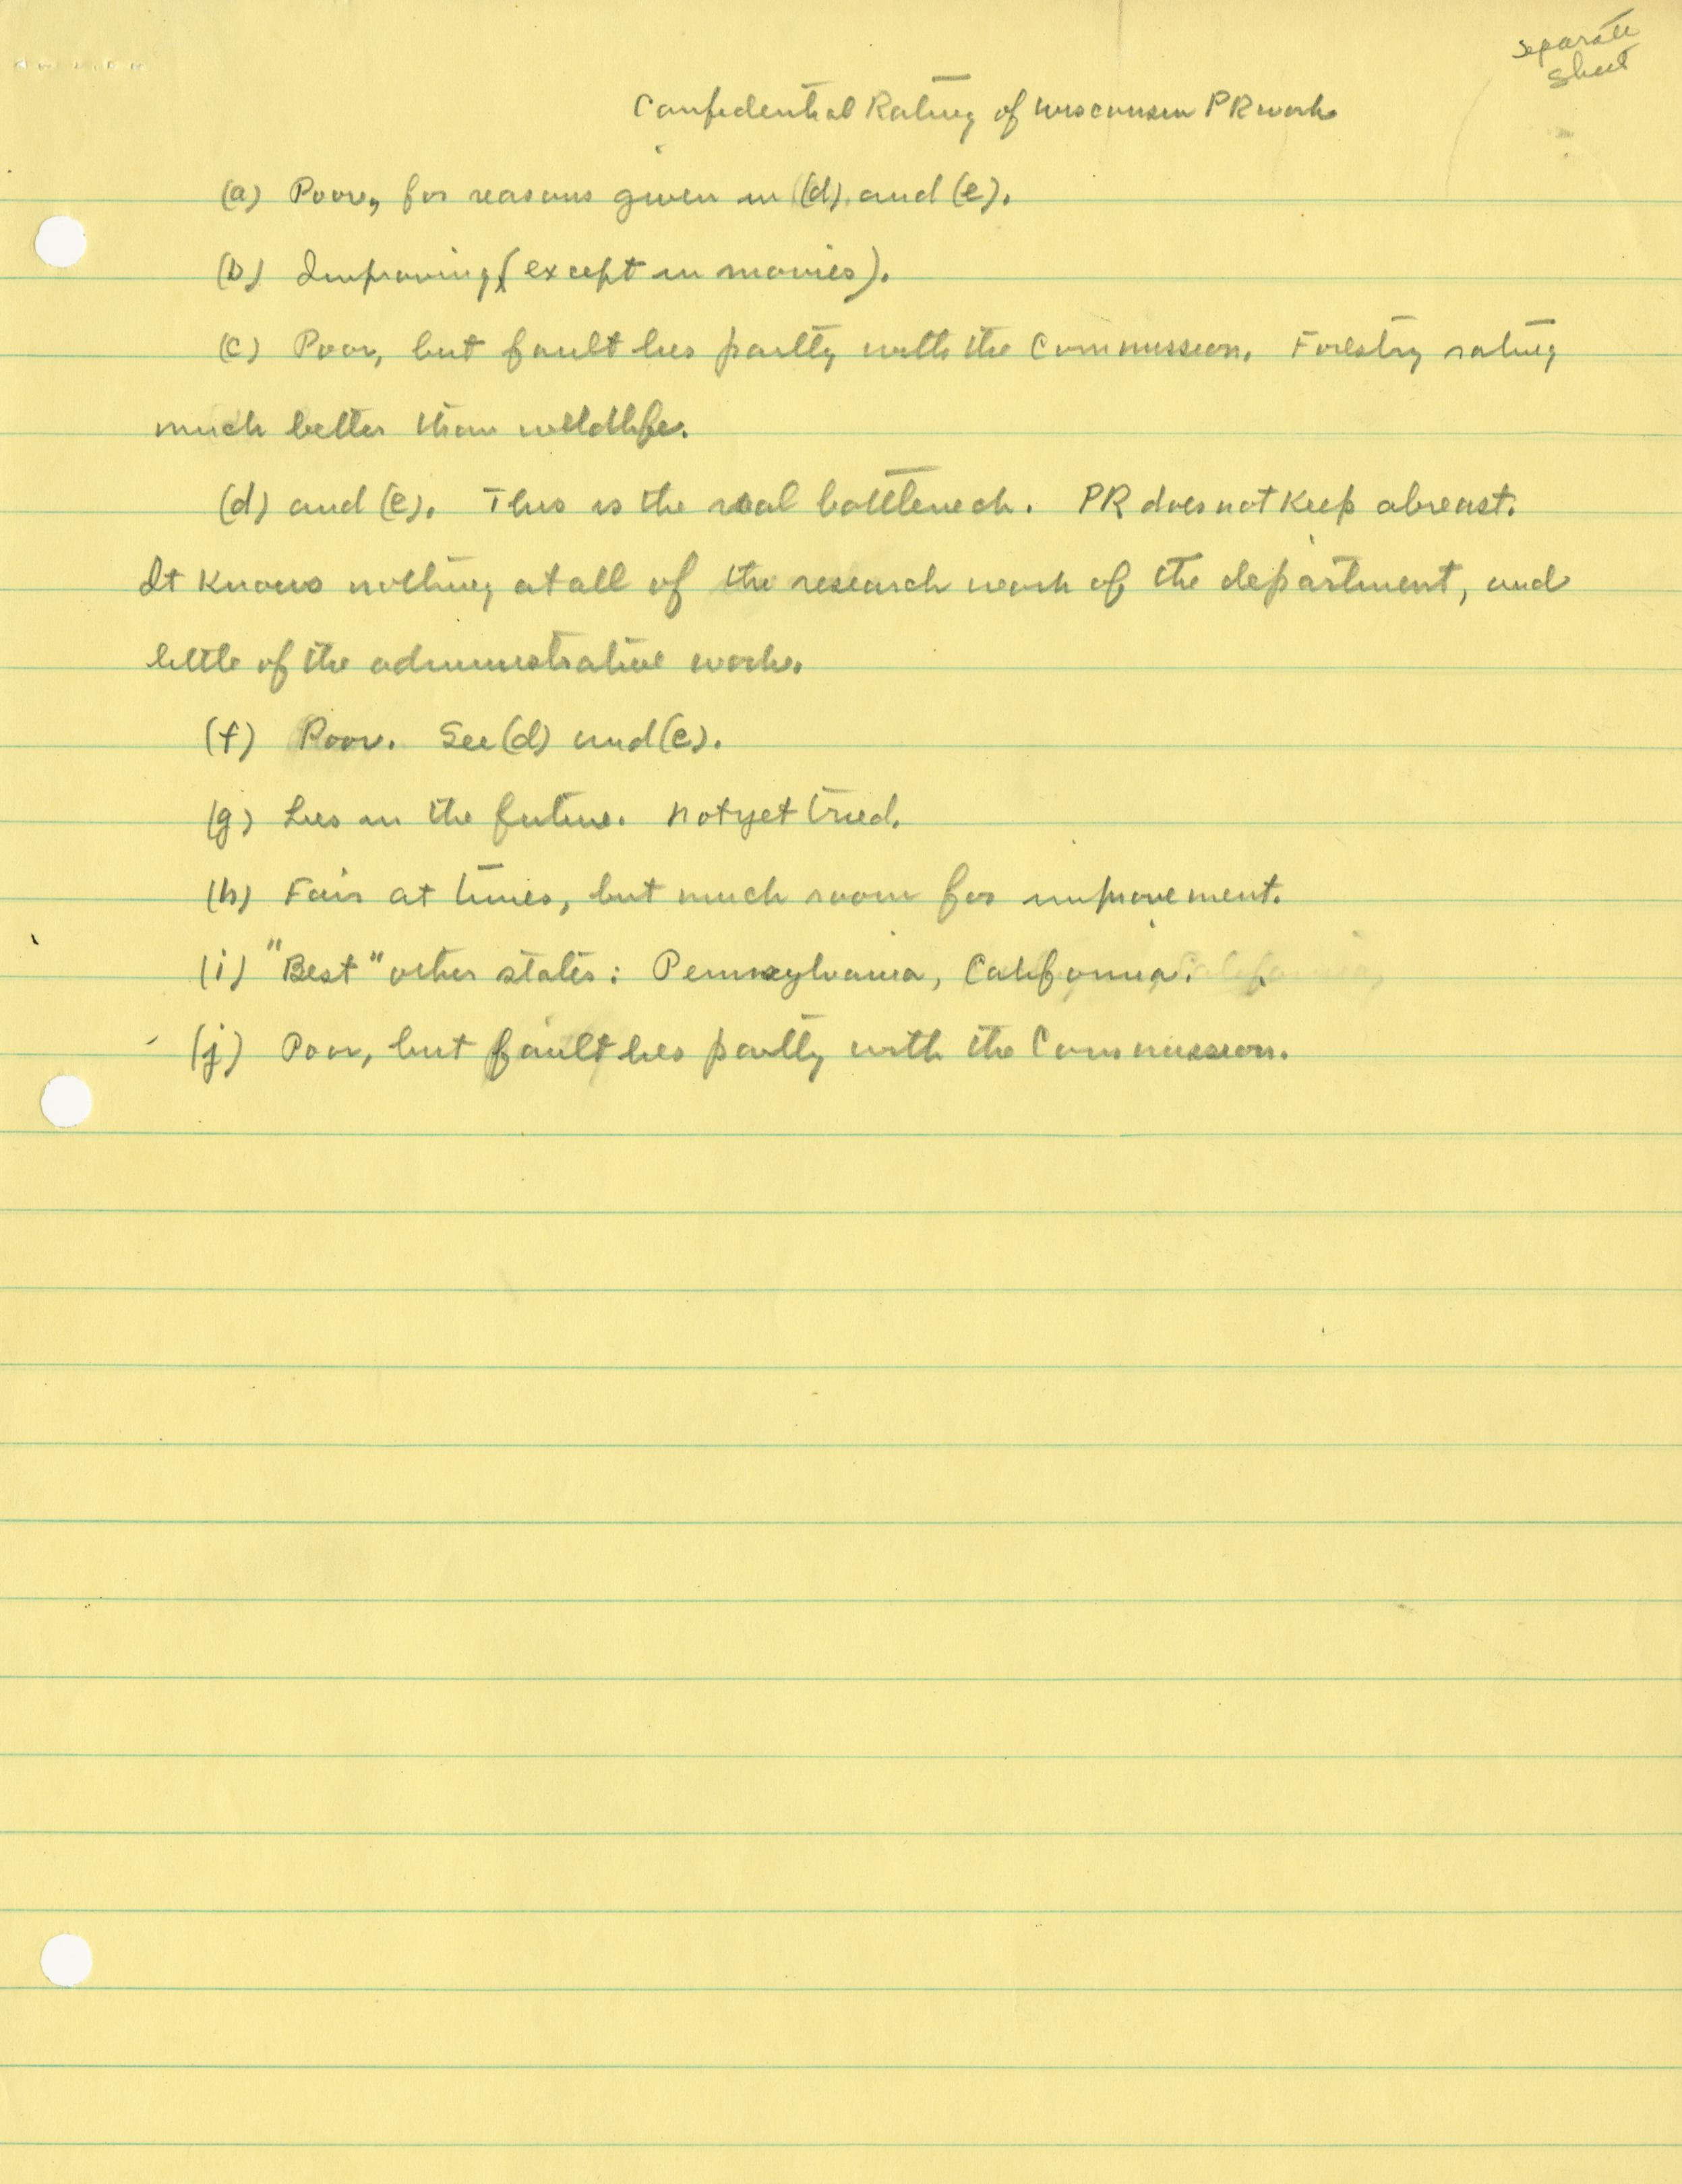 separate
sheet
Confidential Rating of Wisconsin PR work
(a) Poor, for reasons given in (d) and (e).
(b) Improving (except in movies).
(c) Poor, but fault lies partly with the Commission. Forestry rating
much better than wildlife.
(d) and (e). This is the real bottleneck. PR does not keep abreast.
It knows nothing at all of the research work of the department, and
little of the administrative work.
(f) Poor. See (d) and (e).
(g) Lies in the future. Not yet tried.
(h) Fair at times, but much room for improvement.
(i) "Best" other states: Pennsylvania, California.
(j) Poor, but fault lies partly with the Commission.